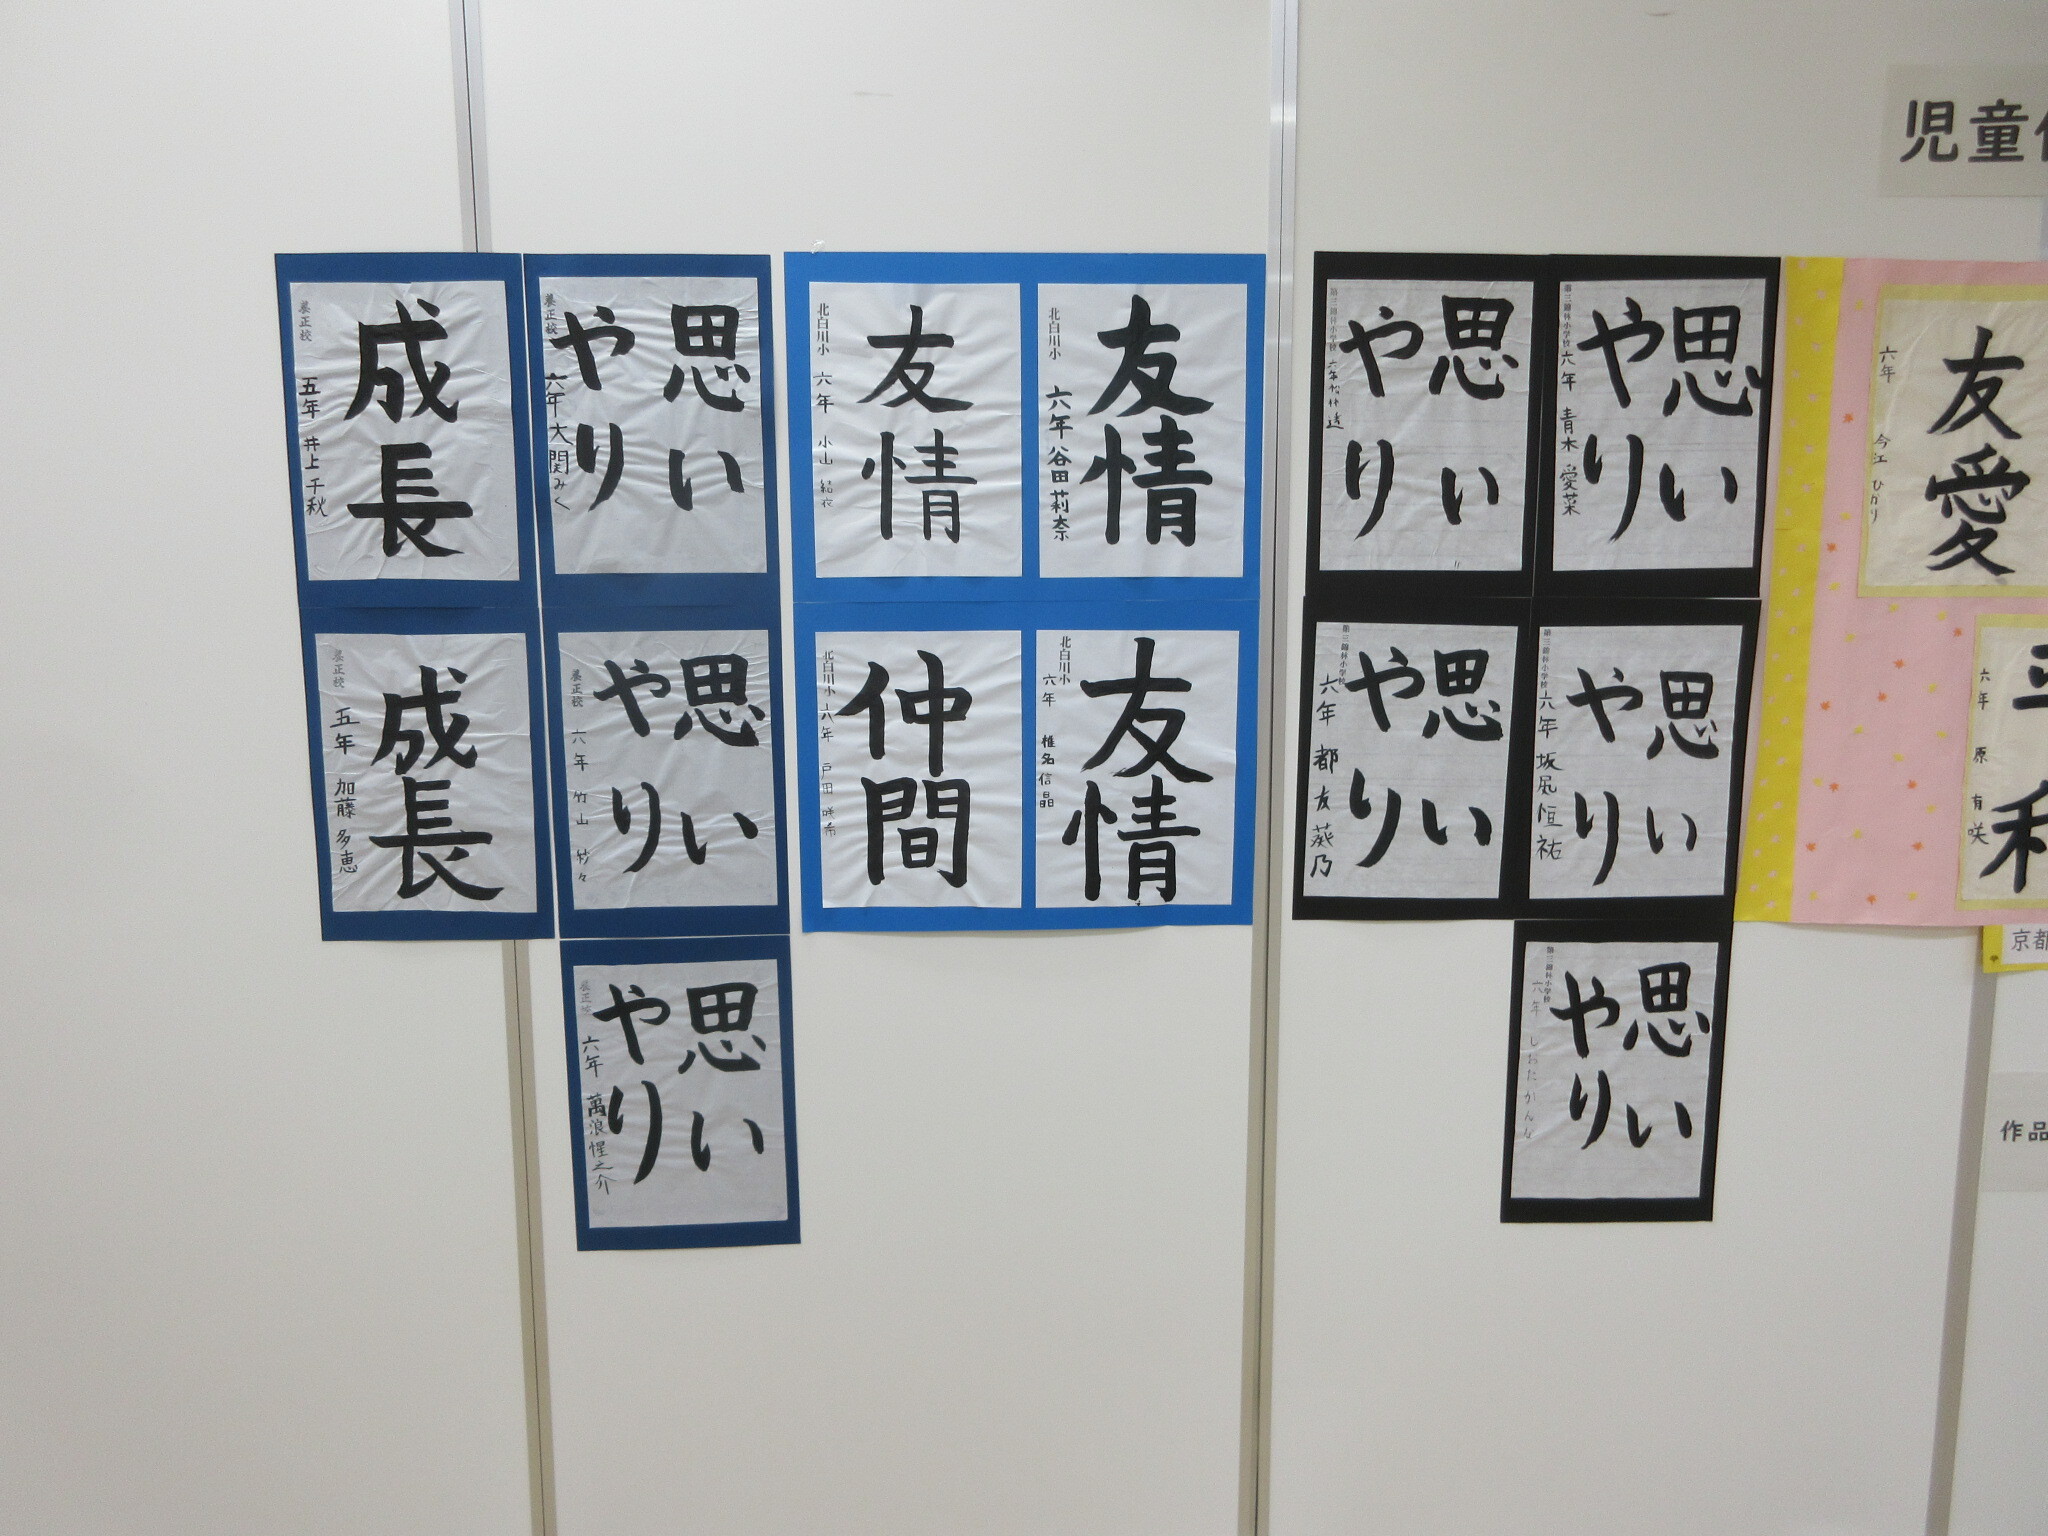 児童
成長
養正校
五年 井上千秋
思い
やり
養正校
六年 大関みく
友情
北白川小
六年 小山 結衣
友情
北白川小
六年 谷田莉奈
思い
やり
第三錦林小学校
六年
思い
やり
第三錦林小学校
六年 青木 愛菜
友愛
六年 今江 ひかり
成長
養正校
五年 加藤多恵
思い
やり
養正校
六年 竹山 紗々
仲間
北白川小
六年 戸田 咲希
友情
北白川小
六年 椎名信晶
思い
やり
第三錦林小学校
六年 都友葵乃
思い
やり
第三錦林小学校
六年 坂尻恒祐
平和
六年 原 有咲
思い
やり
養正校
六年 萬浪惺之介
思い
やり
第三錦林小学校
六年 しおたかんな
京都
作品